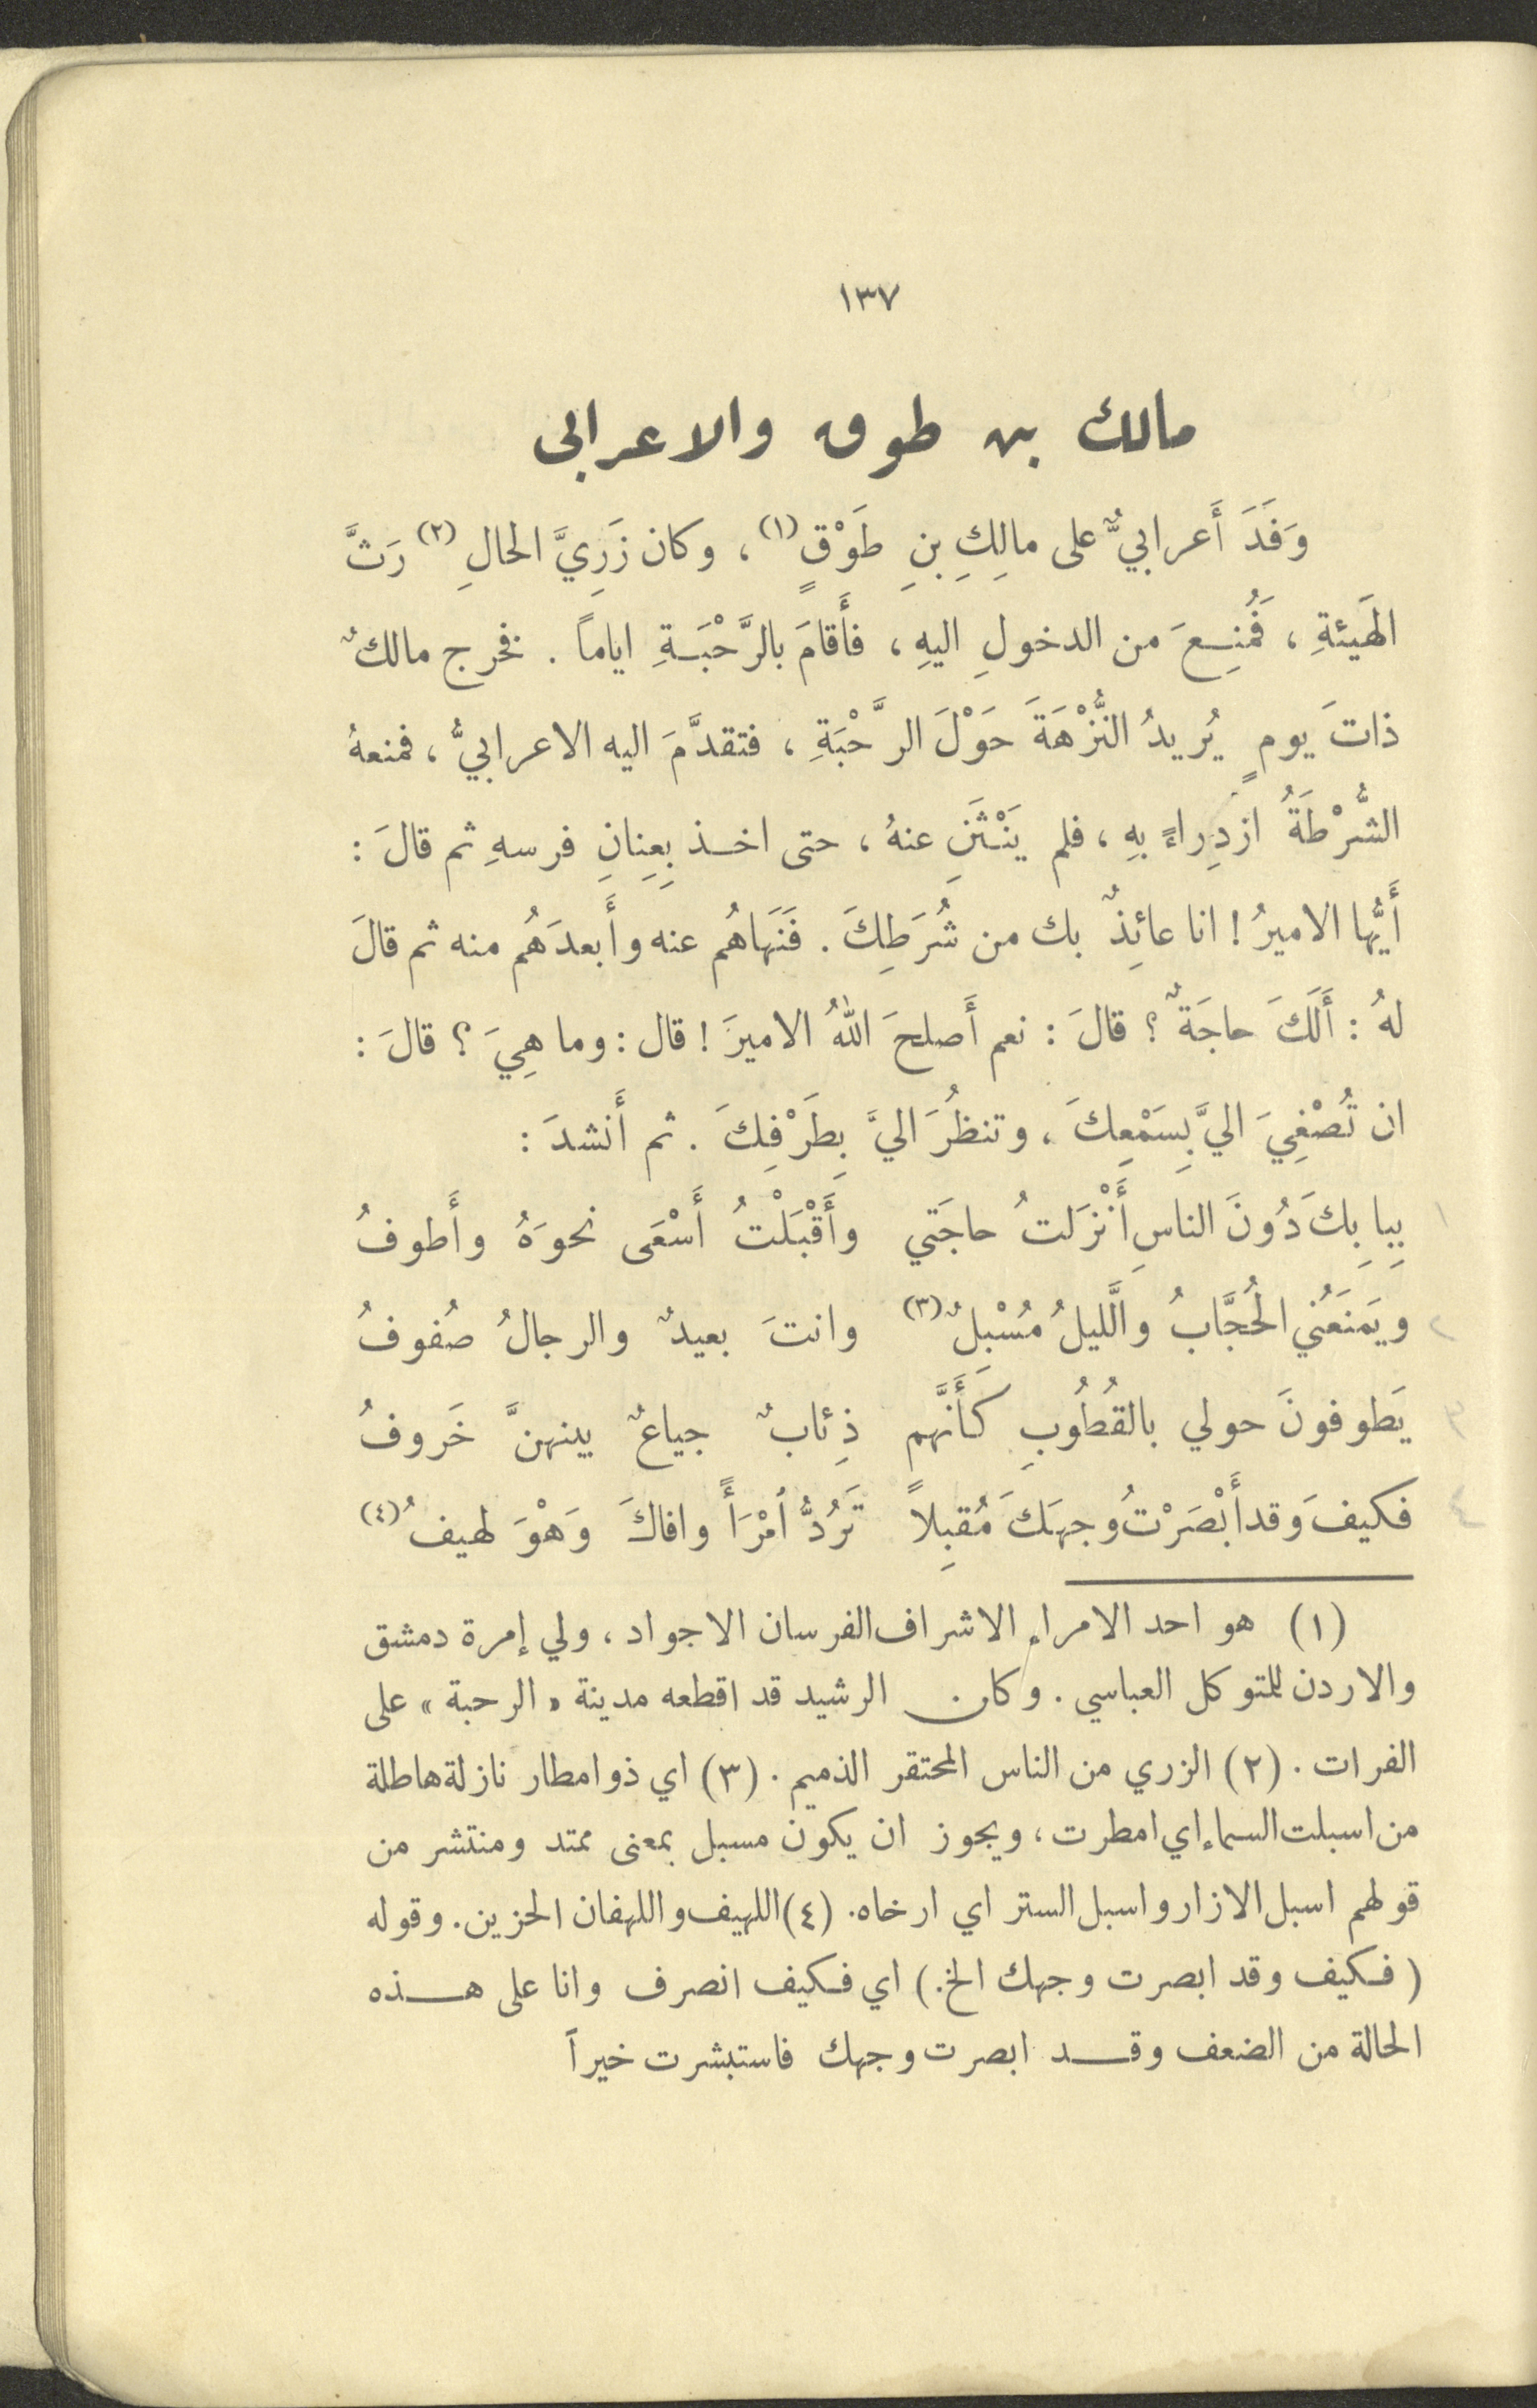 ١٣٧
مالك بن طوق والاعرابي
وَفَدَ أَعرابيٌّ على مالِكِ بنِ طَوْقٍ (١) ، وكان زَرِيَّ الحالِ (٢) رَثَّ
الهَيئةِ ، فَمُنِعَ من الدخولِ اليهِ ، فأَقامَ بالرَّحْبَةِ اياماً . فخرج مالكٌ
ذاتَ يومٍ يُريدُ النُّزْهَةَ حَوْلَ الرَّحْبَةِ ، فتقدَّمَ اليه الاعرابيُّ ، فمنعهُ
الشُّرْطَةُ ازدِراءً بهِ ، فلم يَنْثَنِ عنهُ ، حتى اخذ بِعِنِانِ فرسهِ ثم قالَ :
أَيُّها الاميرُ ! انا عائِذٌ بك من شُرَطِكَ . فَنَهَاهُم عنه وأَبعدَهُم منه ثم قالَ
لهُ : أَلَكَ حاجَةٌ ؟ قالَ : نعم أَصلحَ اللهُ الاميرَ ! قال : وما هِيَ ؟ قالَ :
ان تُصْغِيَ اليَّ بِسَمْعِكَ ، وتنظُرَ اليَّ بِطَرْفِكَ . ثم أَنشدَ :
١ بِبابِكَ دُونَ الناسِ أَنْزَلتُ حاجَتي وأَقْبَلْتُ أَسْعَى نحوَهُ وأَطوفُ
٢ ويَمنَعُني الحُجَّابُ والَّليلُ مُسْبِلٌ (٣) وانتَ بعيدٌ والرجالُ صُفوفُ
٣ يَطوفونَ حولي بالقُطُوبِ كَأَنَّهم ذِئابٌ جياعٌ بينهنَّ خَروفُ
٤ فكيفَ وَقد أَبْصَرْتُ وجهَكَ مُقبِلاً تَرُدُّ ٱمْرَأً وافاكَ وَهْوَ لهيفُ (٤)
(١) هو احد الامراء الاشراف الفرسان الاجواد ، ولي إمرة دمشق
والاردن للمتوكل العباسي . وكان الرشيد قد اقطعه مدينة « الرحبة » على
الفرات . (٢) الزري من الناس المحتقر الذميم . (٣) اي ذو امطار نازلة هاطلة
من اسبلت السماء اي امطرت ، ويجوز ان يكون مسبل بمعنى ممتد ومنتشر من
قولهم اسبل الازار واسبل الستر اي ارخاه. (٤) اللهيف واللهفان الحزين. وقوله
( فكيف وقد ابصرت وجهك الخ. ) اي فكيف انصرف وانا على هذه
الحالة من الضعف وقد ابصرت وجهك فاستبشرت خيراً